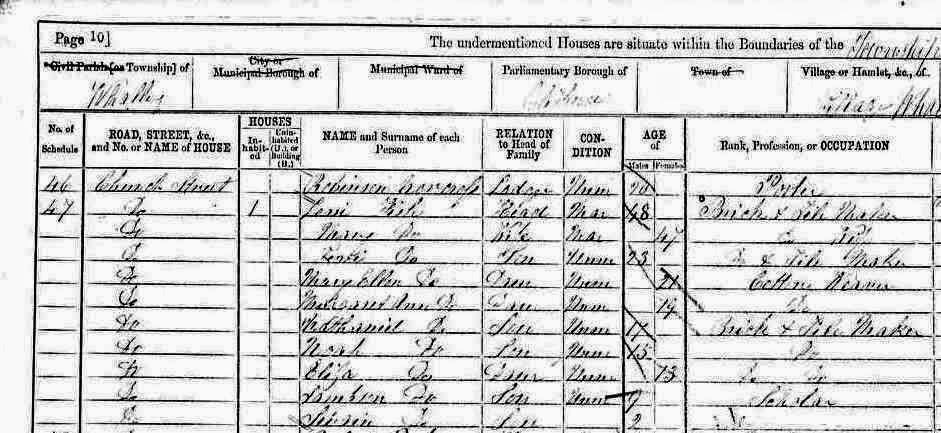 Page 10]
The undermentioned Houses are situate within the Boundaries of the Township
Civil Parish [or Township] of
City or
Municipal Borough of
Municipal Ward of
Parliamentary Borough of
Town of
Village or Hamlet, &c., of
Whalley
Clitheroe
No. of
Schedule
ROAD, STREET, &c.,
and No. or NAME of HOUSE
HOUSES
In-
habit-
ed
Unin-
habited
(U.), or
Building
(B.)
NAME and Surname of each
Person
RELATION
to Head of
Family
CON-
DITION
AGE
of
Males Females
Rank, Profession, or OCCUPATION
46 Church Street Robinson Lodger Unm 20 Porter
47 Do 1 Head Mar 48 Brick & Tile Maker
Do Do Wife Mar 47 Do Wife
Do Do Son Unm 23 Do & Tile Maker
Do Mary Ellen Do Daur Unm 21 Cotton Weaver
Do Margaret Ann Do Daur Unm 19 Do
Do Nathaniel Do Son Unm 17 Brick & Tile Maker
Do Noah Do Son Unm 15 Do
Do Eliza Do Daur Unm 13 Do Do
Do Do Son Unm 9 Scholar
Do Do Son 2